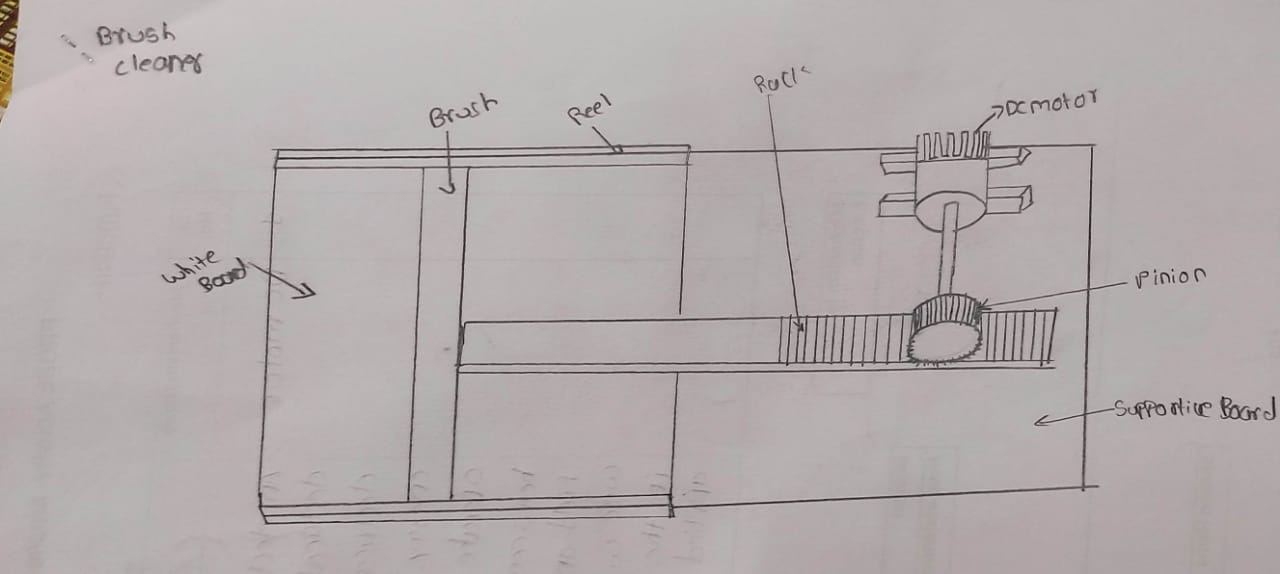 Brush
cleaner
Brush
Reel
Rack
DC motor
White
Board
Pinion
Supportive Board